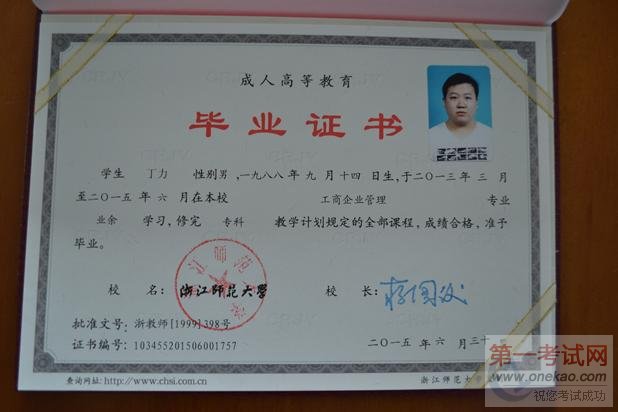 成人高等教育
毕业证书
学生 丁力 性别男,一九八八年九月十四日生,于二〇一三年三月
至二〇一五年六月在本校 工商企业管理 专业
业余 学习,修完 专科 教学计划规定的全部课程,成绩合格,准予
毕业。
校 名: 浙江师范大学 校 长:
批准文号: 浙教师[1999]398号
证书编号: 103455201506001757 二〇一五年六月三十
查询网址: http://www.chsi.com.cn 浙江师范大学
第一考试网
www.onekao.com
祝您考试成功